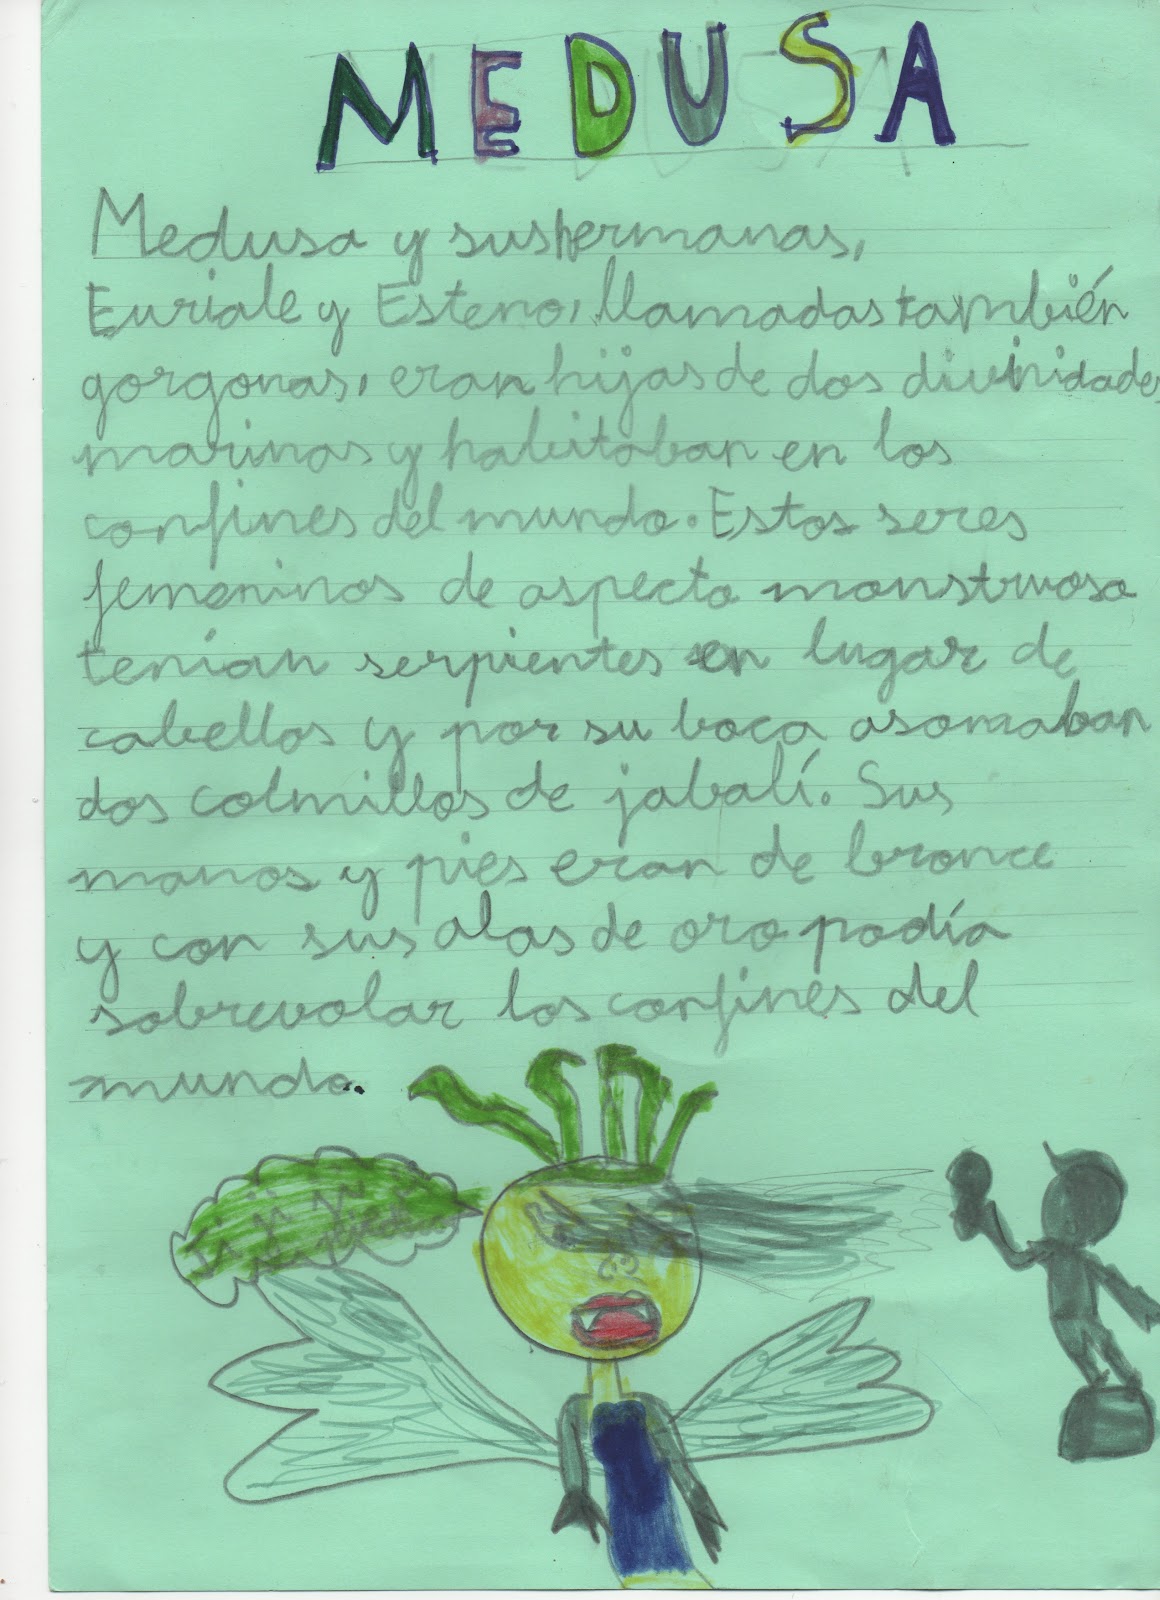 MEDUSA
Medusa y sus hermanas,
Euriale y Esteno, llamadas también
gorgonas, eran hijas de dos divinidades
marinas y habitaban en los
confines del mundo. Estos seres
femeninos de aspecto monstruoso
tenían serpientes en lugar de
cabellos y por su boca asomaban
dos colmillos de jabalí. Sus
manos y pies eran de bronce
y con sus alas de oro podía
sobrevolar los confines del
mundo.